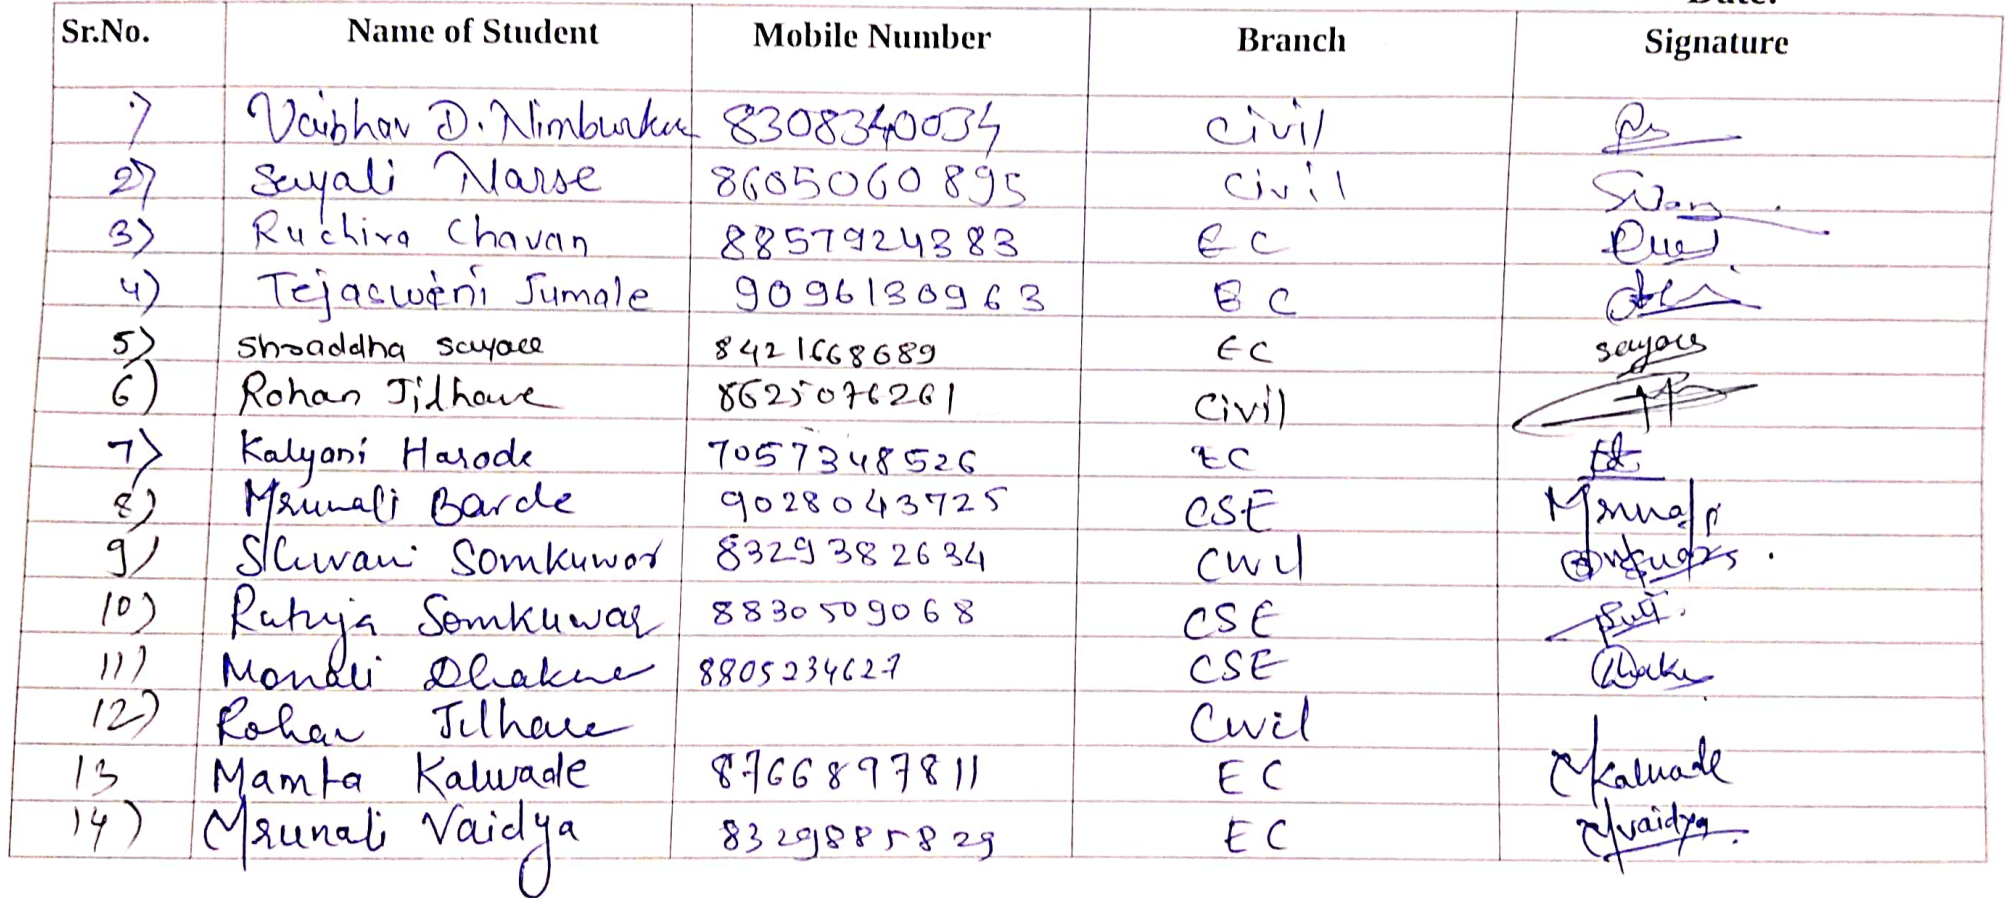 Sr.No. Name of Student Mobile Number Branch Signature
1) Vaibhav D. Nimburkar 8308340034 Civil
2) Sayali Narse 8605060895 Civil
3) Ruchira Chavan 8857924383 EC
4) Tejasweni Jumale 9096130963 EC
5) Shraddha sayace 8421668689 EC
6) Rohan Jilhare 8625076261 Civil
7) Kalyani Harode 7057348526 EC
8) Mrunali Barde 9028043725 CSE Mrunali
9) Shivani Somkuwar 8329382634 Civil
10) Rutuja Somkuwar 8830509068 CSE
11) Monali Dhakne 8805234627 CSE
12) Rohan Jilhare Civil
13 Mamta Kalwade 8766897811 EC Mkalwade
14) Mrunali Vaidya 8329885829 EC Mvaidya